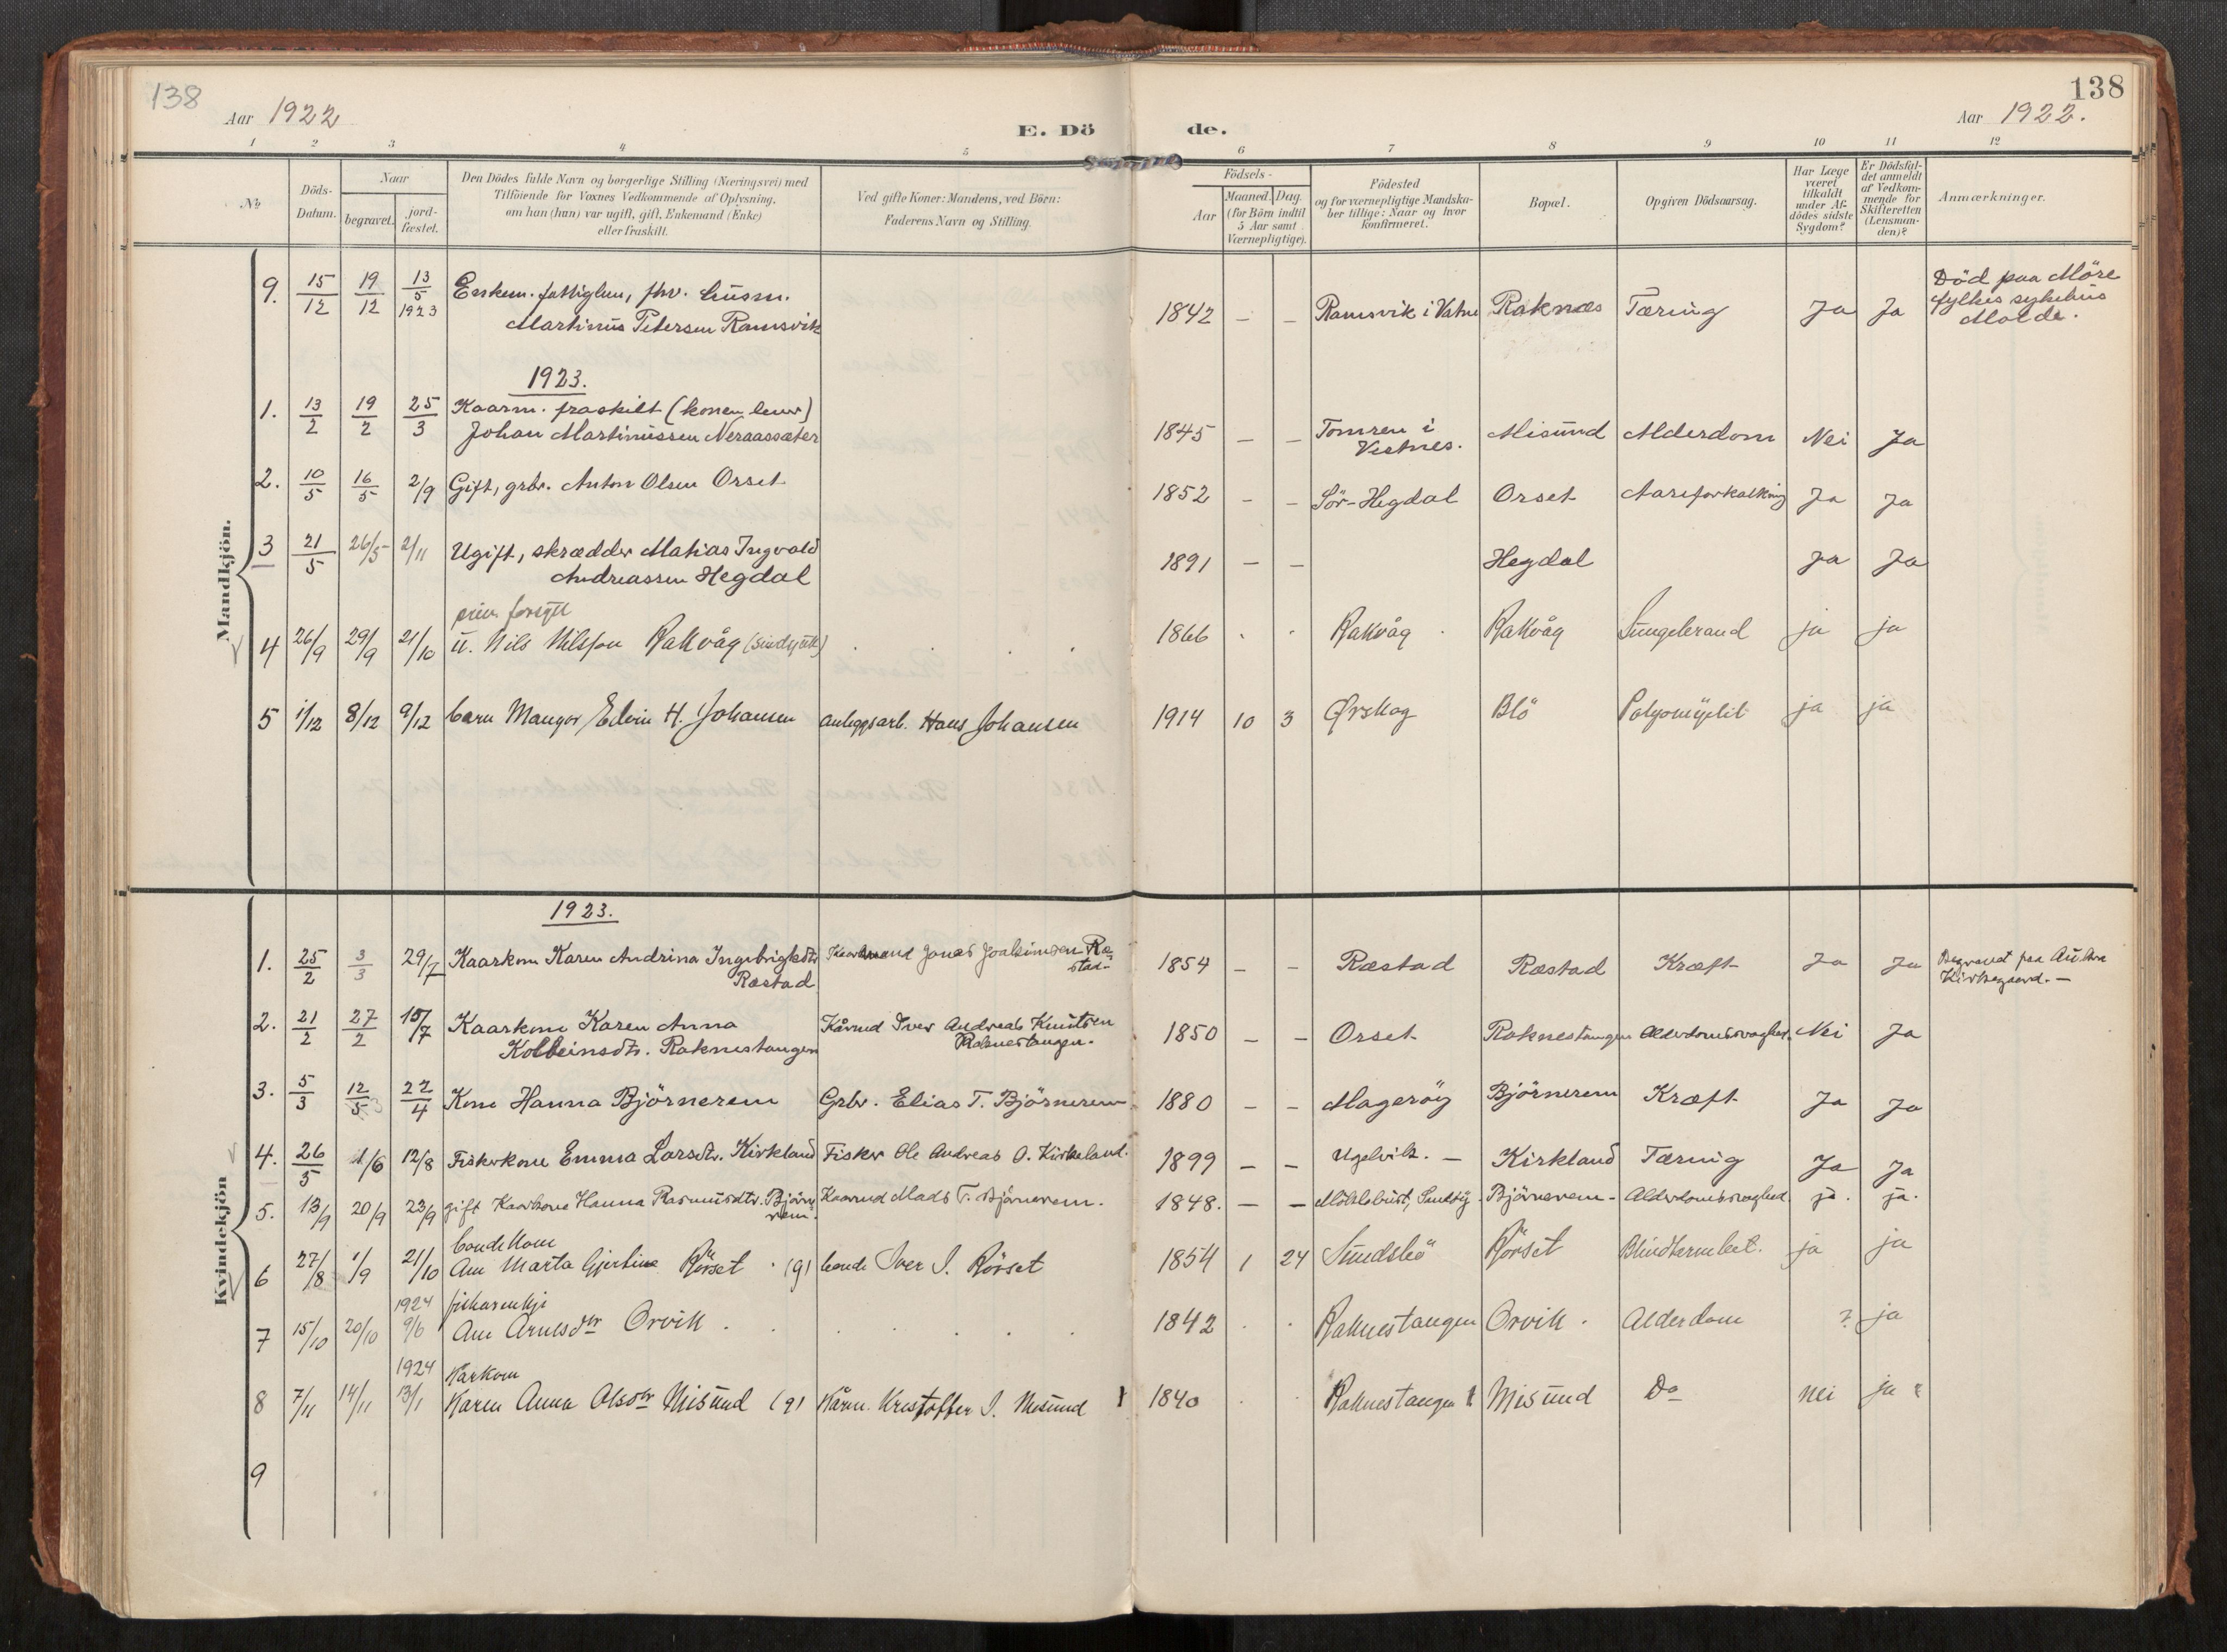 138
Aar 1922
E. Dö
de.
138
Aar 1922.
1 2 3 4 5 6 7 8 9 10 11 12
No
Döds-
Datum.
Naar
begravet.
jord-
fæstet.
Den Dödes fulde Navn og borgerlige Stilling (Næringsvei) med
Tilföiende for Voxnes Vedkommende af Oplysning,
om han (hun) var ugift, gift, Enkemand (Enke)
eller fraskilt.
Ved gifte Koner: Mandens, ved Börn:
Faderens Navn og Stilling.
Födsels-
Aar
Maaned. Dag.
(for Börn indtil
5 Aar samt
Værnepligtige).
Födested
og for værnepligtige Mandska-
ber tillige: Naar og hvor
konfirmeret.
Bopæl.
Opgiven Dödsaarsag.
Har Læge
været
tilkaldt
under Af-
dödes sidste
Sygdom?
Er Dödsfal-
det anmeldt
af Vedkom-
mende for
Skifteretten
(Lensman-
den)?
Anmærkninger.
Mandkjön.
9. 15/12 19/12 13/5 1923 Enkem. fattiglem, fhv. husm.
Martinus Petersen Ramsvik
1842 – – Ramsvik i Vatne Raknæs Tæring Ja Ja
Död paa Möre
fylkes sykehus
Molde.
1923.
1. 13/2 19/2 25/3 Kaarm. fraskilt (konen lever)
Johan Martinussen Neraassæter
1845 – – Tomren i
Vestnes.
Misund Alderdom Nei Ja
2. 10/5 16/5 2/9 Gift, grbr. Anton Olsen Orset
1852 – – Sör-Hegdal Orset Aareforkalkning Ja Ja
3 21/5 26/5 2/11 Ugift, skrædder Matias Ingvald
Andreassen Hegdal
1891 – – Hegdal Ja Ja
priv. forsyn
4 26/9 29/9 21/10 u. Nils Nilsson Rakvåg (sindssyk)
1866 Rakvåg Rakvåg ja ja
5 1/12 8/12 9/12 barn Mangor Edvin H. Johansen anleggsarb. Hans Johansen
1914 10 3 Ørskog Blö ja ja
Kvindekjön
1923.
1. 25/2 3/3 29/7 Kaarkone Karen Andrina Ingebrigtsdtr.
Ræstad
Kaarmand Jonas Joakimsen Ræ-
stad-
1854 – – Ræstad Ræstad Kræft Ja Ja
Begravet paa Aukra
Kirkegaard. –
2. 21/2 27/2 15/7 Kaarkone Karen Anna
Kolbeinsdtr. Raknestangen
Kårmd Iver Andreas Knutsen
Raknestangen.
1850 – – Orset Raknestangen Alderdomssvaghed. Nei Ja
3. 5/3 12/5 22/4 Kone Hanna Björnerem Grbr. Elias T. Björnerem
1880 – – Mageröy Björnerem Kræft Ja Ja
4. 26/5 1/6 12/8 Fiskerkone Emma Larsdtr. Kirkland Fisker Ole Andreas O. Kirkeland.
1899 – – Ugelvik. – Kirkland Tæring Ja Ja
5. 13/9 20/9 23/9 gift Kaarkone Hanna Rasmusdtr. Björne-
rem.
Kaarmd Mads T. Björnerem.
1848. – – Björnerem- Alderdomssvaghed ja. ja.
bondekone
6 27/8 1/9 21/10 Ane Marta Gjertine Rörset (g) bonde Iver I. Rörset
1854 1 24 Sundsbö Rörset ja ja
1924
7 15/10 20/10 9/6 Ane Arnesdtr Orvik
1842 Raknestangen Orvik Alderdom ? ja
1924 Kårkone
8 7/11 14/11 13/1 Karen Anna Olsdtr Misund (g) Kårm. Kristoffer I. Misund
1840 Raknestangen Misund Do nei ja
9